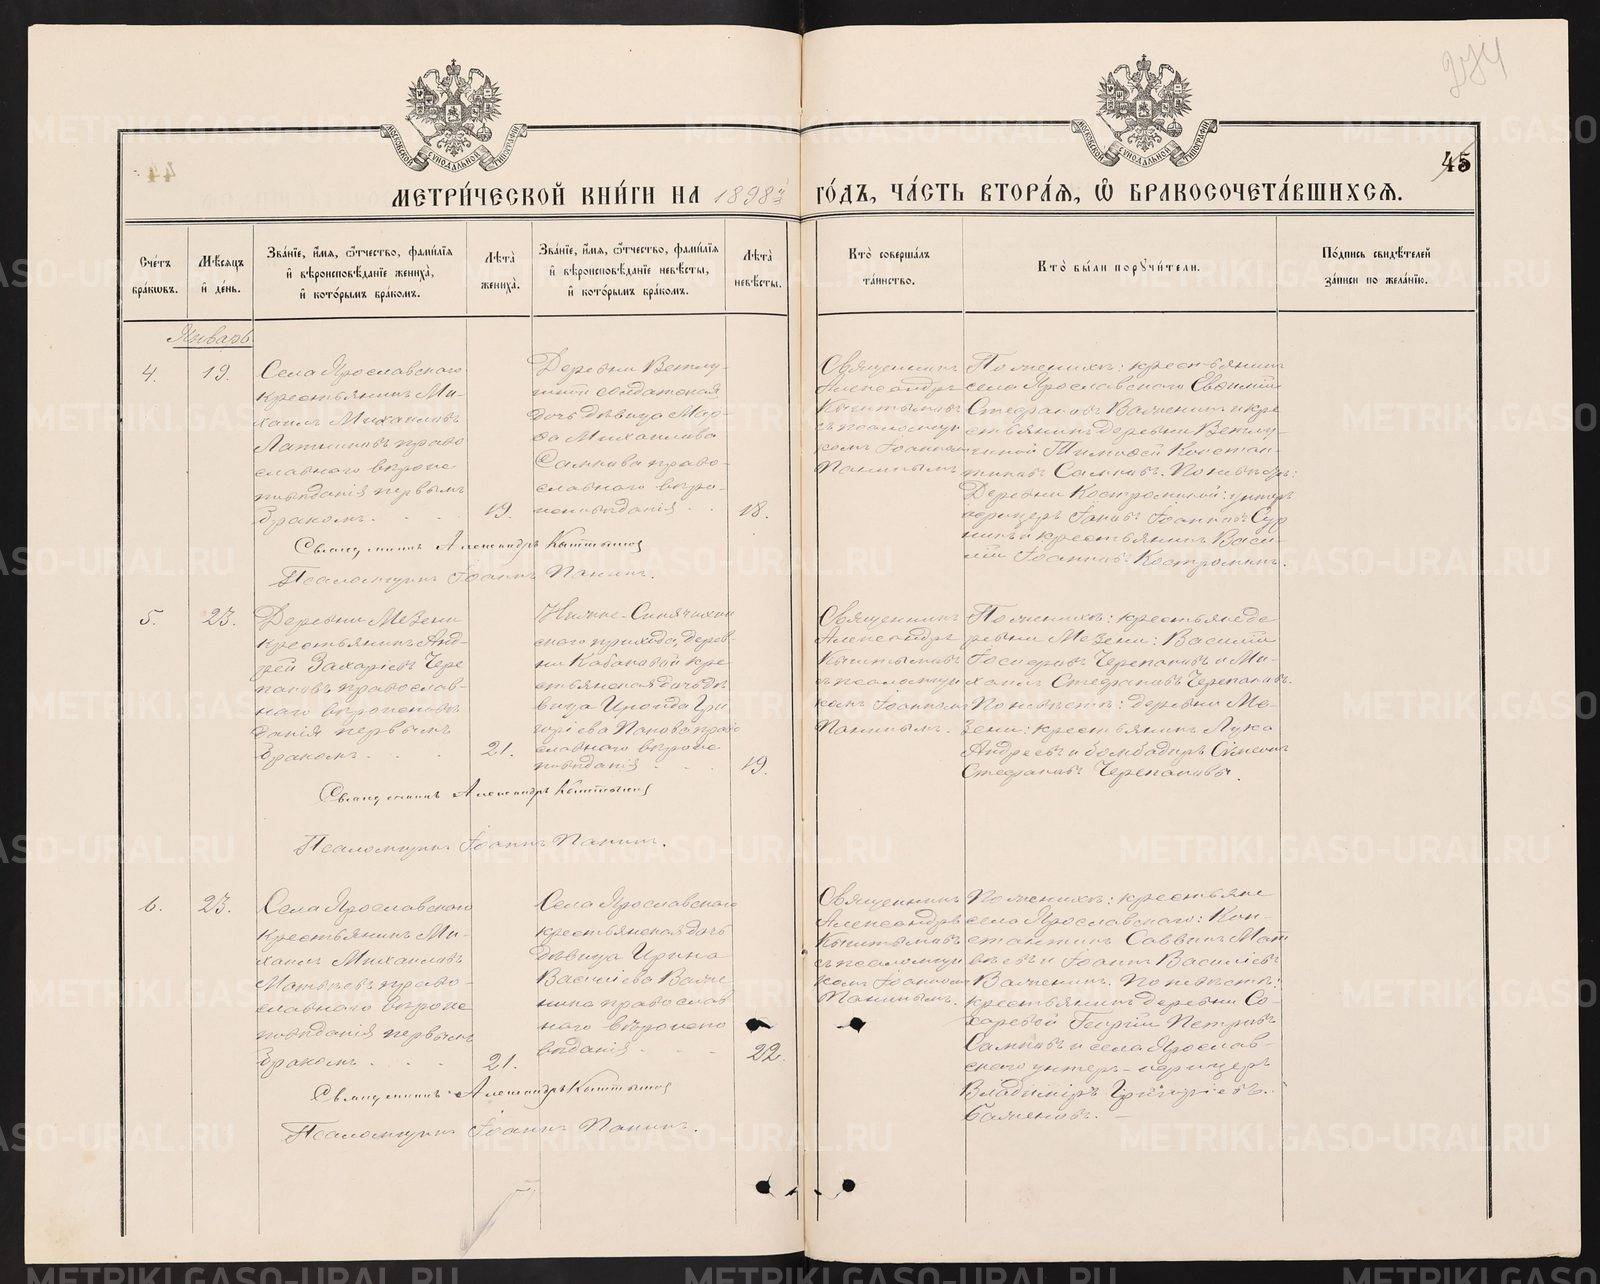 274
45
МЕТРИ́ЧЕСКОЙ КНИ́ГИ НА 1898й ГО́ДЪ, ЧА́СТЬ ВТОРА́Я, Ѿ БРАКОСОЧЕТА́ВШИХСЯ.
Сче́тъ бра́кωвъ.
Мѣ́сяцъ и҆ де́нь.
Зва́нїе, и҆́мя, ѻ҆́тчество, фами́лїя и҆ вѣроисповѣ́данїе жениха̀, и҆ кото́рымъ бра́комъ.
Лѣта̀ жениха̀.
Зва́нїе, и҆́мя, ѻ҆́тчество, фами́лїя и҆ вѣроисповѣ́данїе невѣ́сты, и҆ кото́рымъ бра́комъ.
Лѣта̀ невѣ́сты.
Кто̀ соверша́лъ та́инство.
Кто̀ бы́ли пору́чители.
По́дпись свидѣ́телей за́писи по жела́нїю.
Январь
4.
19.
Села Ярославскаго
крестьянинъ Ми-
хаилъ Михаиловъ
право
славнаго вѣроис
повѣданія первымъ
бракомъ.
19.
Деревни Ветлу-
солдатская
дочь дѣвица Мар-
ѳа Михаилова
право-
славнаго вѣро-
исповѣданія
18.
Священникъ
Александръ
съ псаломщи
комъ Іоанномъ
Панинымъ
По женихѣ: крестьянинъ
села Ярославскаго Евѳимій
Стефановъ и кре
стьянинъ деревни Ветлу
Тимофей Констан-
тиновъ По невѣстѣ:
Деревни Костроминой: унтеръ
офицеръ Іоаннов
и крестьянинъ Васи-
лій Іоанновъ Костроминъ.
Священникъ Александръ
Псаломщикъ Іоаннъ Панинъ.
5.
23.
Деревни Мезени
крестьянинъ Анд-
рей Захаріевъ Чере
пановъ православ-
наго вѣроисповѣ
данія первымъ
бракомъ.
21.
прихода, дерев
ни Кабаковой кре
стьянская дочь дѣ
вица Ираида Гри
горіева Панова право
славнаго вѣроис
повѣданія
19.
Священникъ
Александръ
съ псаломщи
комъ Іоанномъ
Панинымъ.
По женихѣ: крестьяне де
ревни Мезени: Василій
Іосифовъ Черепановъ и Ми-
хаилъ Стефановъ Черепановъ.
По невѣстѣ: деревни Ме-
зени: крестьянинъ Лука
Андреевъ и бомбадиръ Сѵмеонъ
Стефановъ Черепановы.
Священникъ Александръ
Псаломщикъ Іоаннъ Панинъ.
6.
23.
Села Ярославскаго
крестьянинъ Ми-
хаилъ Михаиловъ
Матвѣевъ право-
славнаго вѣроис
повѣданія первымъ
бракомъ.
21.
Села Ярославскаго
крестьянская дочь
дѣвица Ирина
Василіева
православ
наго вѣроиспо
вѣданія
22.
Священникъ
Александръ
съ псаломщи
комъ Іоанномъ
Панинымъ.
По женихѣ: крестьяне
села Ярославскаго: Кон-
стантинъ Саввинъ Мат
вѣевъ и Іоаннъ Василіевъ
По невѣстѣ:
крестьянинъ деревни Со-
харевой Георгій Петровъ
и села Ярослав-
скаго унтеръ-офицеръ
Владиміръ Григоріевъ
Священникъ Александръ
Псаломщикъ Іоаннъ Панинъ.
METRIKI.GASO-URAL.RU